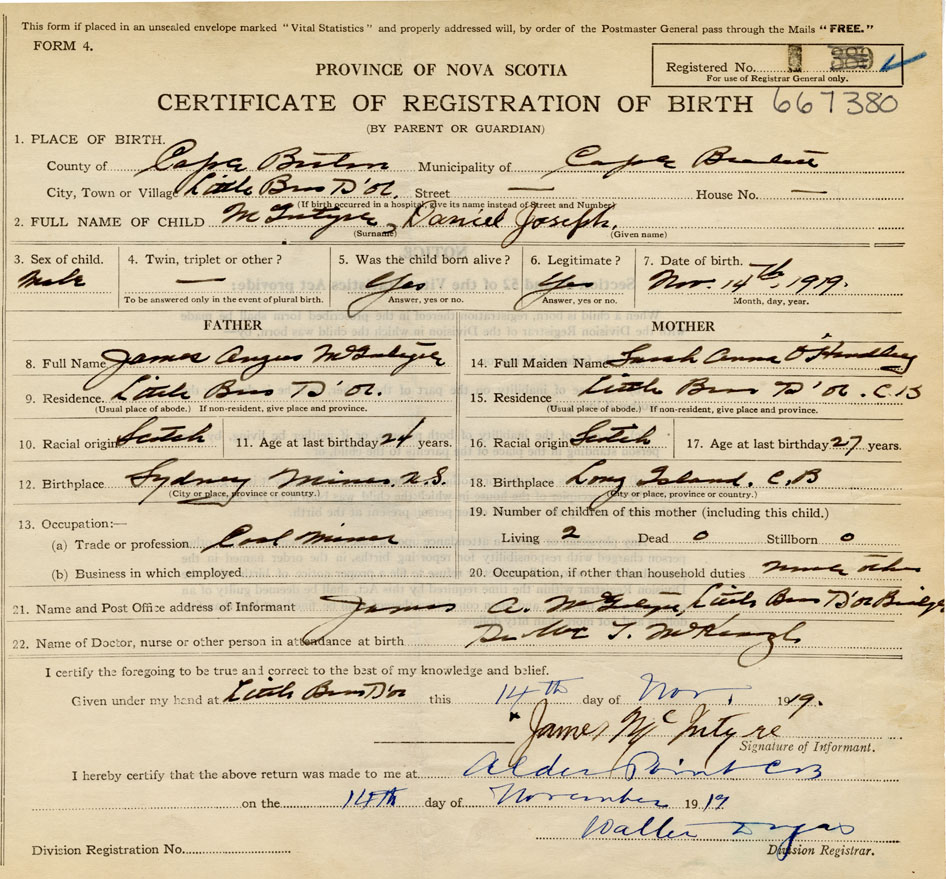 This form if placed in an unsealed envelope marked "Vital Statistics" and properly addressed will, by order of the Postmaster General pass through the Mails "FREE."
FORM 4.
Registered No. 389
For use of Registrar General only.
PROVINCE OF NOVA SCOTIA
CERTIFICATE OF REGISTRATION OF BIRTH 667380
(BY PARENT OR GUARDIAN)
1. PLACE OF BIRTH.
County of Cape Breton Municipality of Cape Breton
City, Town or Village Little Bras D'or. Street — House No. —
(If birth occurred in a hospital, give its name instead of Street and Number)
2. FULL NAME OF CHILD McIntyre, Daniel Joseph.
(Surname) (Given name)
3. Sex of child. 4. Twin, triplet or other? 5. Was the child born alive? 6. Legitimate? 7. Date of birth.
Male — Yes Yes Nov. 14th, 1919.
To be answered only in the event of plural birth. Answer, yes or no. Answer, yes or no. Month, day, year.
FATHER MOTHER
8. Full Name James Angus McIntyre 14. Full Maiden Name Sarah Anna O'Handley
9. Residence. Little Bras D'or. 15. Residence Little Bras D'or. C.B
(Usual place of abode.) If non-resident, give place and province. (Usual place of abode.) If non-resident, give place and province.
10. Racial origin Scotch 11. Age at last birthday 24 years. 16. Racial origin Scotch 17. Age at last birthday 27 years.
12. Birthplace Sydney Mines. N.S. 18. Birthplace Long Island. C.B
(City or place, province or country.) (City or place, province or country.)
19. Number of children of this mother (including this child.)
13. Occupation:—
(a) Trade or profession Coal Miner Living 2 Dead 0 Stillborn 0
(b) Business in which employed 20. Occupation, if other than household duties other
21. Name and Post Office address of Informant James A. McIntyre, Little Bras D'or Bridge
22. Name of Doctor, nurse or other person in attendance at birth McKenzie
I certify the foregoing to be true and correct to the best of my knowledge and belief.
Given under my hand at Little Bras D'or this 14th day of Nov. 1919.
James McIntyre
Signature of Informant.
I hereby certify that the above return was made to me at Alder Point CB
on the 14th day of November 1919
Walter
Division Registration No. Division Registrar.